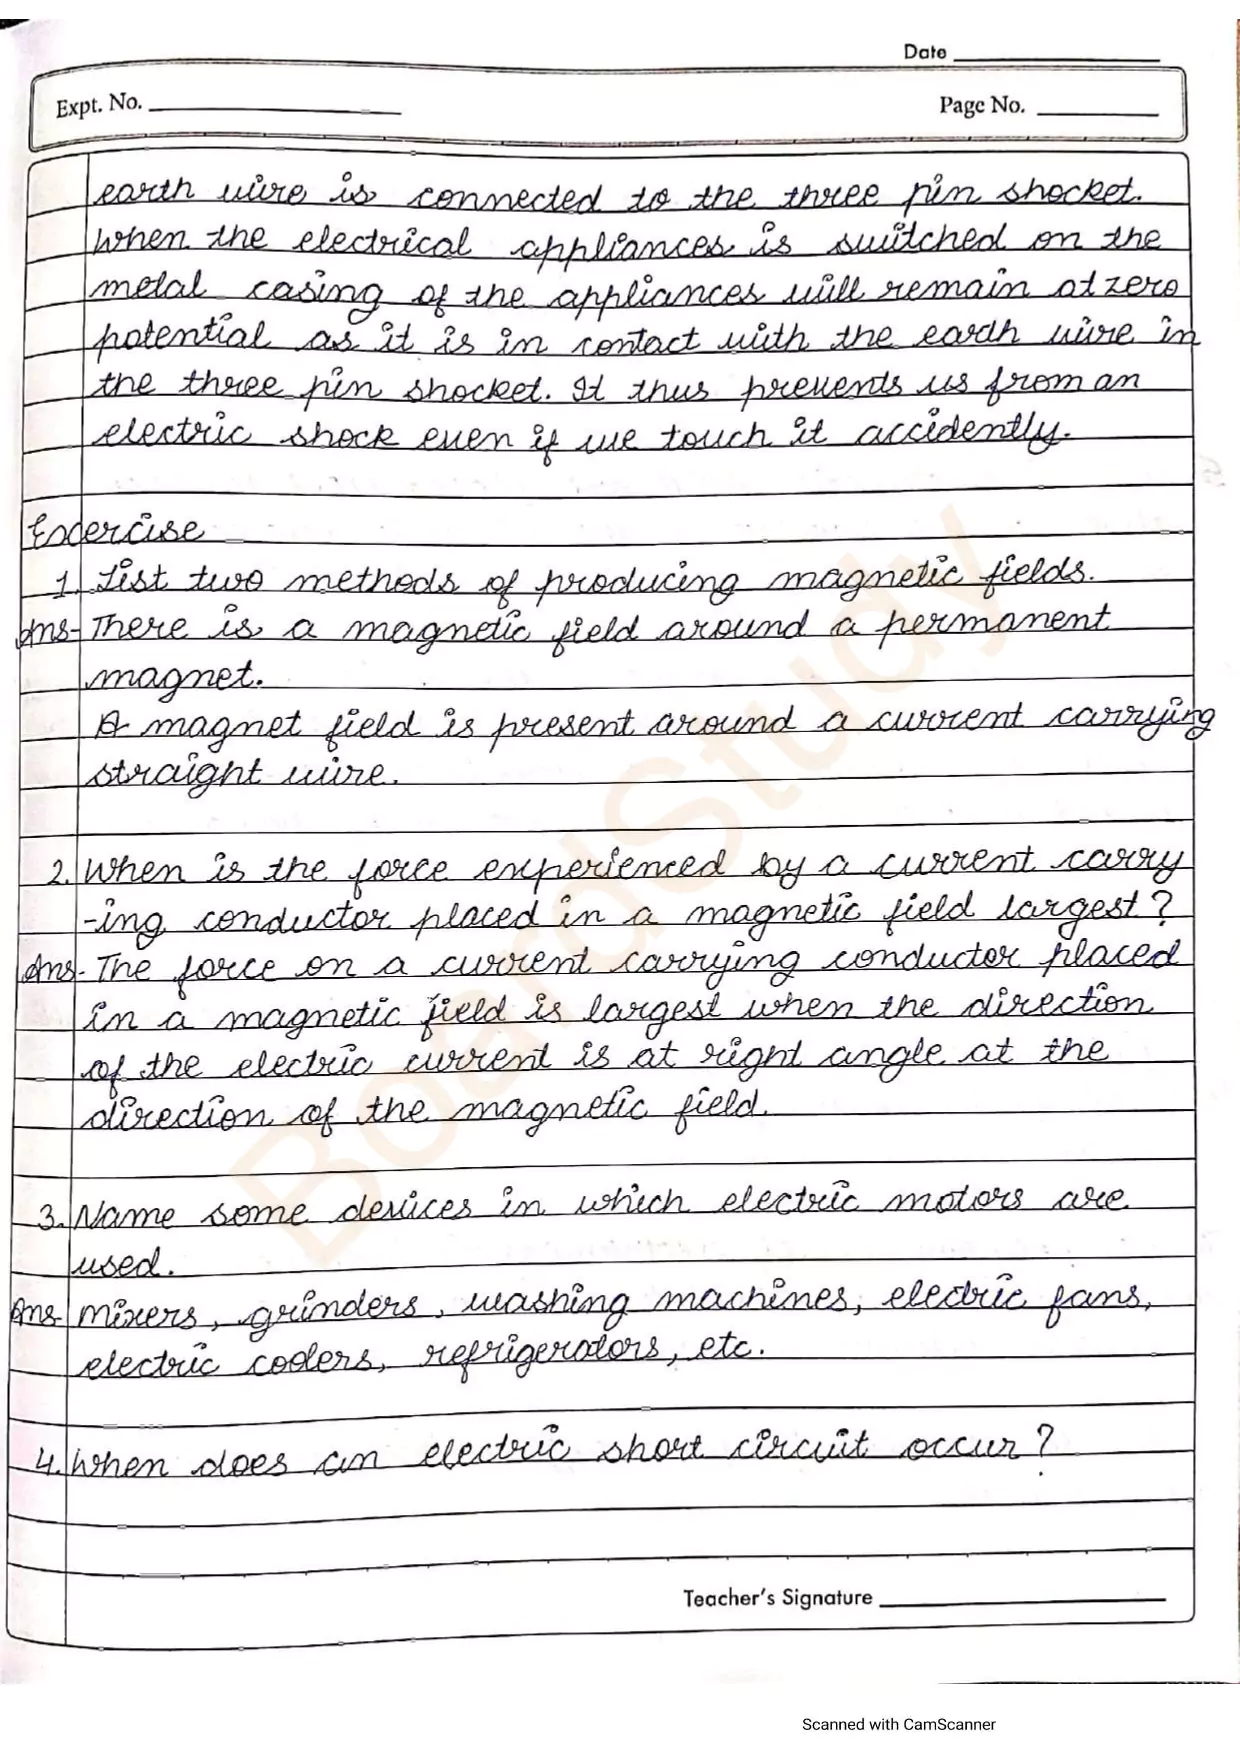 Date
Expt. No.
Page No.
earth wire is connected to the three pin shocket.
When the electrical appliances is switched on the
metal casing of the appliances will remain at zero
potential as it is in contact with the earth wire in
the three pin shocket. It thus prevents us from an
electric shock even if we touch it accidently.
Exercise
1. List two methods of producing magnetic fields.
Ans- There is a magnetic field around a permanent
magnet.
A magnet field is present around a current carrying
straight wire.
2. When is the force experienced by a current carry
-ing conductor placed in a magnetic field largest?
Ans- The force on a current carrying conductor placed
in a magnetic field is largest when the direction
of the electric current is at right angle at the
direction of the magnetic field.
3. Name some devices in which electric motors are
used.
Ans- mixers, grinders, washing machines, electric fans,
electric coolers, refrigerators, etc.
4. When does an electric short circuit occur?
Teacher's Signature
BoardStudy
Scanned with CamScanner